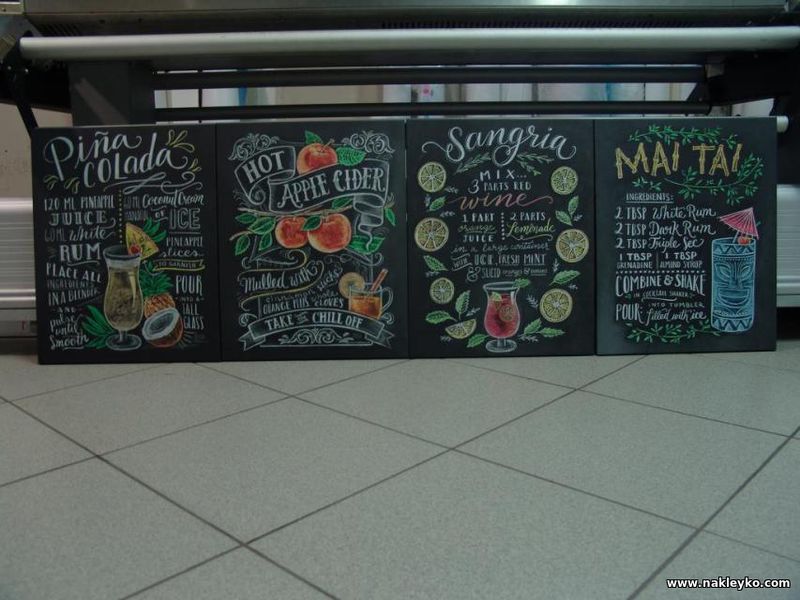 Piña
COLADA
120 ML PINEAPPLE
JUICE
60 ML White
RUM
PLACE ALL
INGREDIENTS
IN A BLENDER
AND
pulse
until
Smooth
60 ML Coconut Cream
HANDFUL OF ICE
PINEAPPLE
slices
TO GARNISH
POUR
INTO A
TALL
GLASS
HOT
APPLE CIDER
Mulled with
ORANGE PEELS & CLOVES
TAKE THE CHILL OFF
Sangria
MIX...
3 PARTS RED
wine
1 PART
orange
JUICE
2 PARTS
Lemonade
in a large container
WITH ICE, FRESH MINT
& SLICED oranges & lemons
MAI TAI
INGREDIENTS:
2 TBSP White Rum
2 TBSP Dark Rum
2 TBSP Triple Sec
1 TBSP GRENADINE
1 TBSP ALMOND SYRUP
COMBINE & SHAKE
IN COCKTAIL SHAKER
POUR INTO TUMBLER
filled with ice
www.nakleyko.com